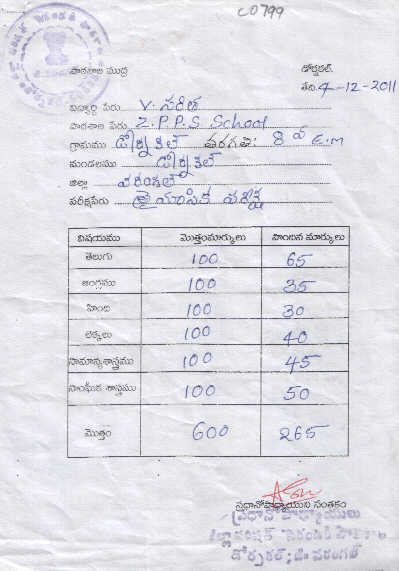 C0799
పాఠశాల ముద్ర డోర్నకల్.
తేది. 4-12-2011
విద్యార్థి పేరు V. సరిత
పాఠశాల పేరు Z.P.P.S School
గ్రామము డోర్నకల్ తరగతి: 8 వ E.M
మండలము డోర్నకల్
జిల్లా వరంగల్
పరీక్షపేరు త్రైమాసిక పరీక్ష
విషయము మొత్తంమార్కులు పొందిన మార్కులు
తెలుగు 100 65
ఇంగ్లము 100 35
హింది 100 30
లెక్కలు 100 40
సామాన్యశాస్త్రము 100 45
సాంఘిక శాస్త్రము 100 50
మొత్తం 600 265
ప్రధానోపాధ్యాయుని సంతకం
ప్రధానోపాధ్యాయులు
డోర్నకల్, జి. వరంగల్